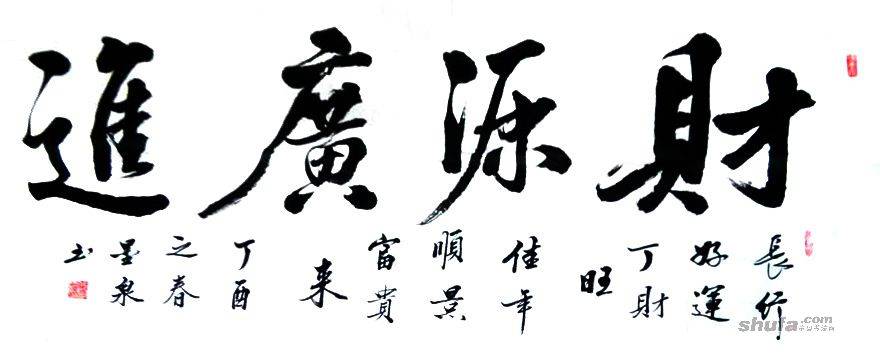 財源廣進
長行
好運
丁財
旺
佳年
順景
富貴
来
丁酉
之春
墨泉
书
shufa.com